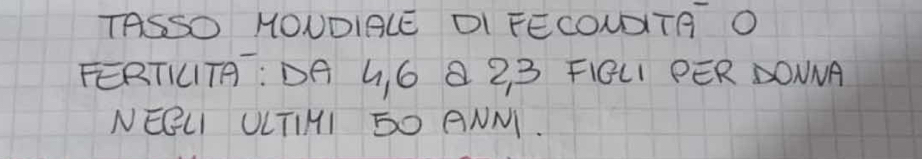 TASSO MONDIALE DI FECONDITÀ O
FERTILITÀ: DA 4,6 a 2,3 FIGLI PER DONNA
NEGLI ULTIMI 50 ANNI.